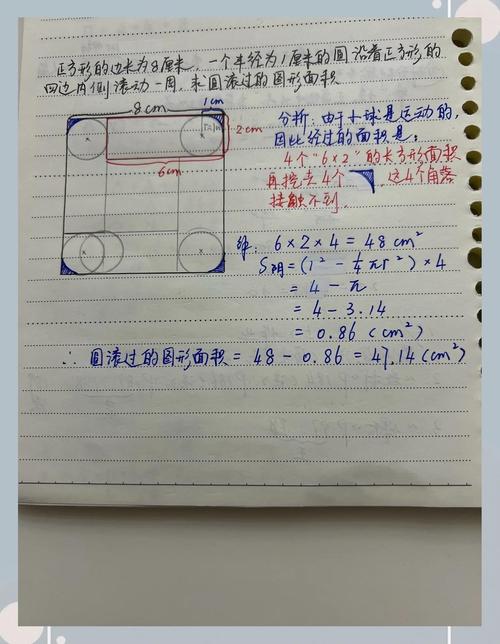 正方形的边长为8厘米，一个半径为1厘米的圆沿着正方形的
四边内侧滚动一周，求圆滚过的图形面积
8cm
1cm
2cm
6cm
分析：由于小球是运动的，
因此经过的面积是：
4个“6×2”的长方形面积
再挖去4个 ，这4个角落
接触不到
解：6×2×4=48cm²
S阴=(1²-¼πr²)×4
=4-π
=4-3.14
=0.86(cm²)
∴圆滚过的图形面积=48-0.86=47.14(cm²)